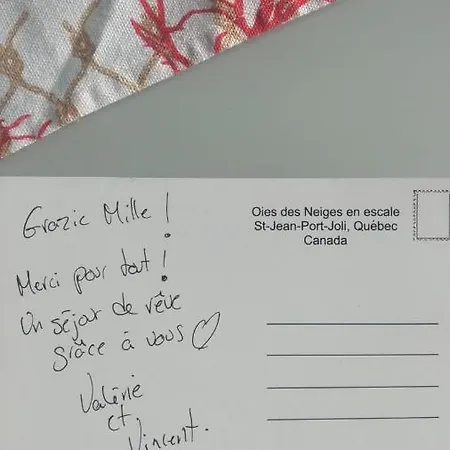 Grazie Mille!
Merci pour tout!
Un séjour de rêve
grâce à vous ♡
Valérie
et
Vincent.
Oies des Neiges en escale
St-Jean-Port-Joli, Québec
Canada